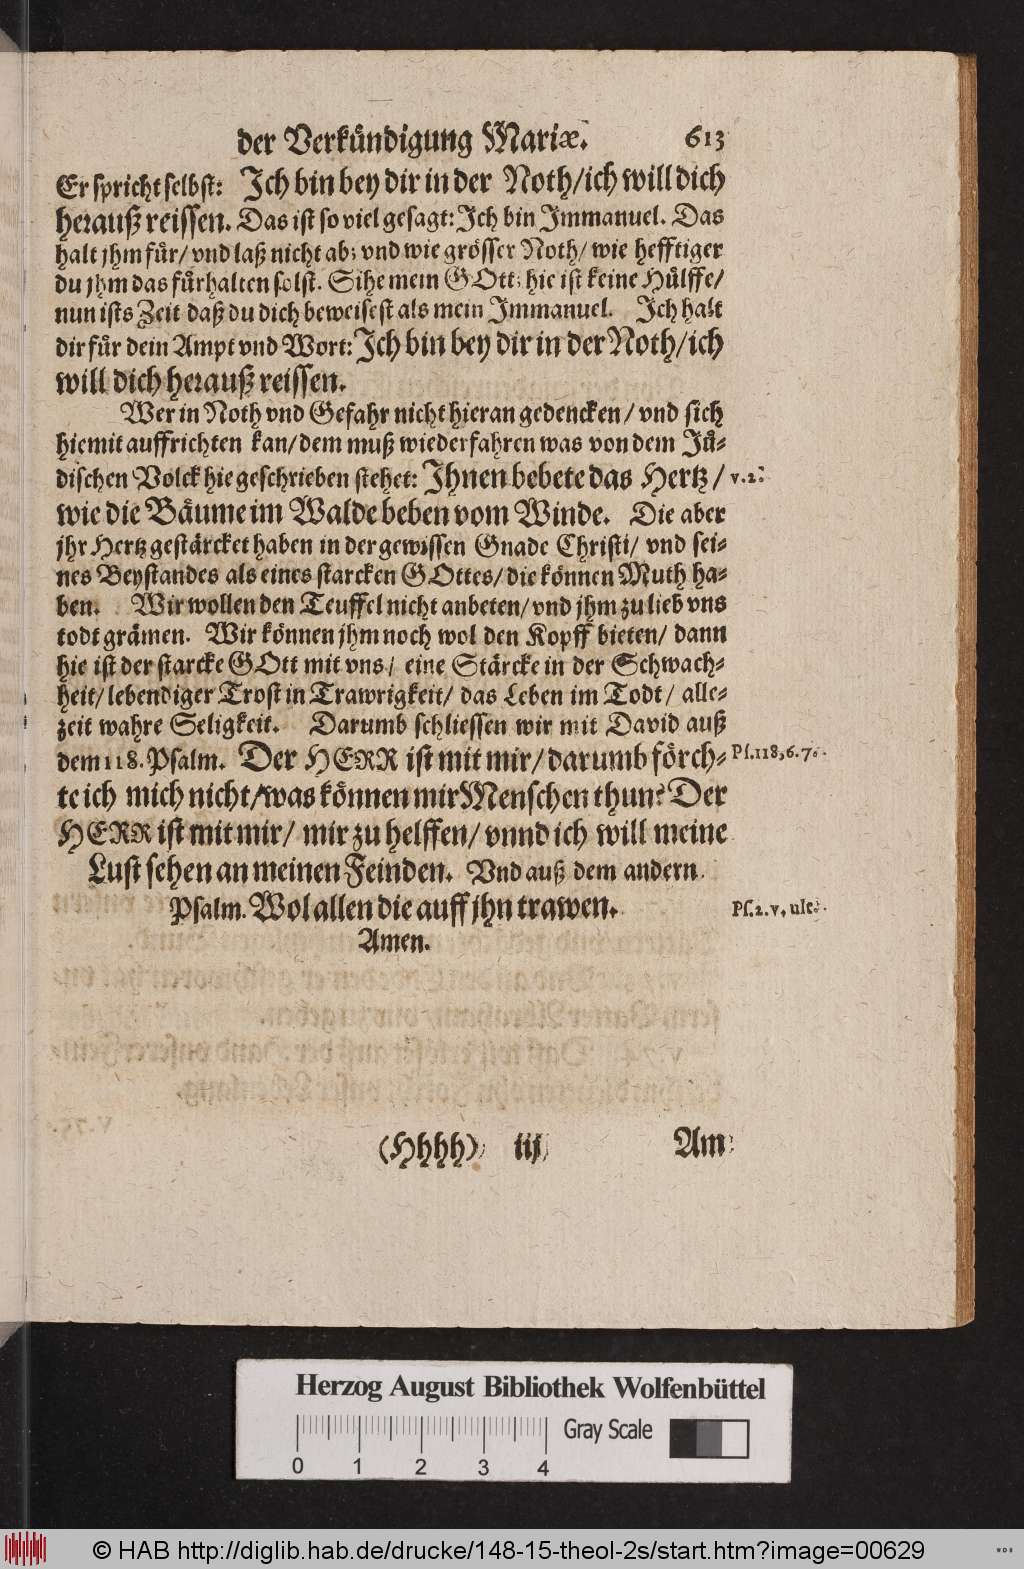 der Verkündigung Mariæ. 613
Er spricht selbst: Ich bin bey dir in der Noth/ich will dich
herauß reissen. Das ist so viel gesagt: Ich bin Immanuel. Das
halt jhm für/ vnd laß nicht ab; vnd wie grösser Noth/ wie hefftiger
du jhm das fürhalten solst. Sihe mein GOtt; hie ist keine Hülffe/
nun ists Zeit daß du dich beweisest als mein Immanuel. Ich halt
dir für dein Ampt vnd Wort: Ich bin bey dir in der Noth/ich
will dich herauß reissen.
Wer in Noth vnd Gefahr nicht hieran gedencken/ vnd sich
hiemit auffrichten kan/ dem muß wiederfahren was von dem Jü-
dischen Volck hie geschrieben stehet: Ihnen bebete das Hertz/ v.2.
wie die Bäume im Walde beben vom Winde. Die aber
jhr Hertz gestärcket haben in der gewissen Gnade Christi/ vnd sei-
nes Beystandes als eines starcken GOttes/ die können Muth ha-
ben. Wir wollen den Teuffel nicht anbeten/ vnd jhm zu lieb vns
todt grämen. Wir können jhm noch wol den Kopff bieten/ dann
hie ist der starcke GOtt mit vns/ eine Stärcke in der Schwach-
heit/ lebendiger Trost in Trawrigkeit/ das Leben im Todt/ alle-
zeit wahre Seligkeit. Darumb schliessen wir mit David auß
dem 118. Psalm. Der HERR ist mit mir/ darumb förch- Ps.118,6.7.
te ich mich nicht/ was können mir Menschen thun? Der
HERR ist mit mir/ mir zu helffen/ vnnd ich will meine
Lust sehen an meinen Feinden. Vnd auß dem andern
Psalm. Wol allen die auff jhn trawen. Ps.2.v.ult.
Amen.
(Hhhh) iij Am
Herzog August Bibliothek Wolfenbüttel
Gray Scale
0 1 2 3 4
© HAB http://diglib.hab.de/drucke/148-15-theol-2s/start.htm?image=00629